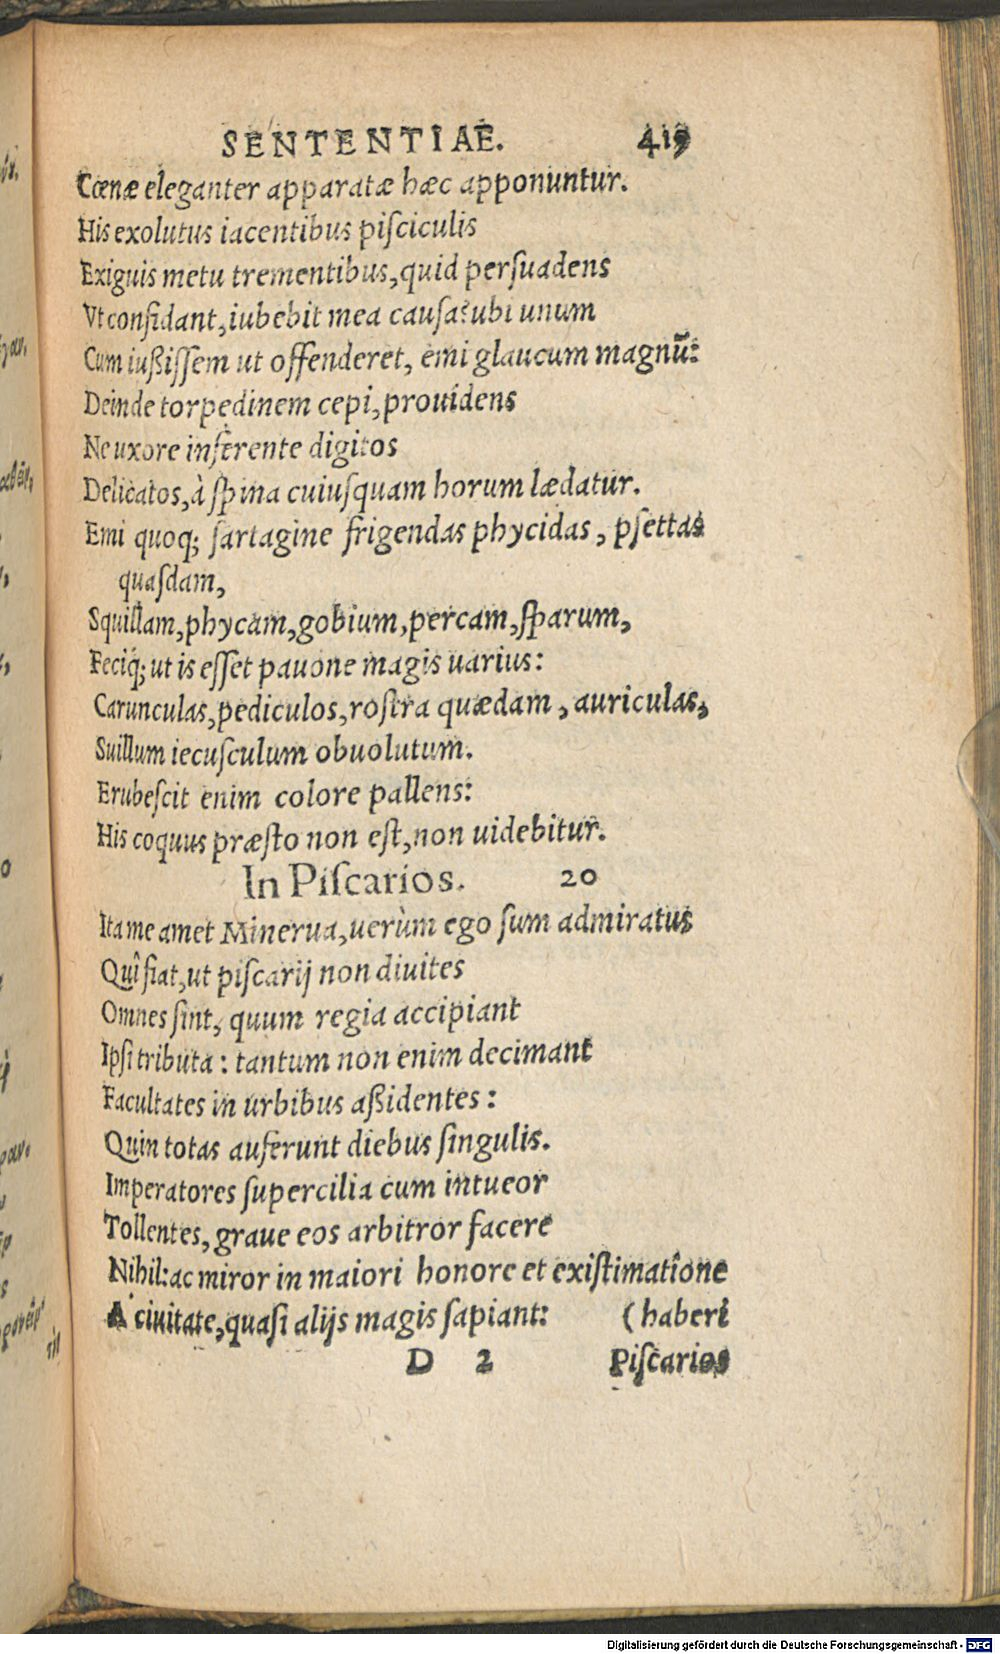 SENTENTIAE. 419
Cœnæ eleganter apparatæ hæc apponuntur.
His exolutus iacentibus piſciculis
Exiguis metu trementibus, quid perſuadens
Vt confidant, iubebit mea cauſa? ubi unum
Cum iußiſſem ut offenderet, emi glaucum magnū:
Deinde torpedinem cepi, prouidens
Ne uxore inferente digitos
Delicatos, à ſpina cuiuſquam horum lædatur.
Emi quoq; ſartagine frigendas phycidas, pſettas
quaſdam,
Squillam, phycam, gobium, percam, ſparum,
Feciq́; ut is eſſet pauone magis uarius:
Carunculas, pediculos, roſtra quædam, auriculas,
Suillum iecuſculum obuolutum.
Erubeſcit enim colore pallens:
His coquus præſto non eſt, non uidebitur.
In Piſcarios. 20
Ita me amet Minerua, uerùm ego ſum admiratus
Quî fiat, ut piſcarij non diuites
Omnes ſint, quum regia accipiant
Ipſi tributa: tantum non enim decimant
Facultates in urbibus aßidentes:
Quin totas auferunt diebus ſingulis.
Imperatores ſupercilia cum intueor
Tollentes, graue eos arbitror facere
Nihil: ac miror in maiori honore et exiſtimatione
A' ciuitate, quaſi alijs magis ſapiant: (haberi
D 2 Piſcarios
Digitalisierung gefördert durch die Deutsche Forschungsgemeinschaft - DFG